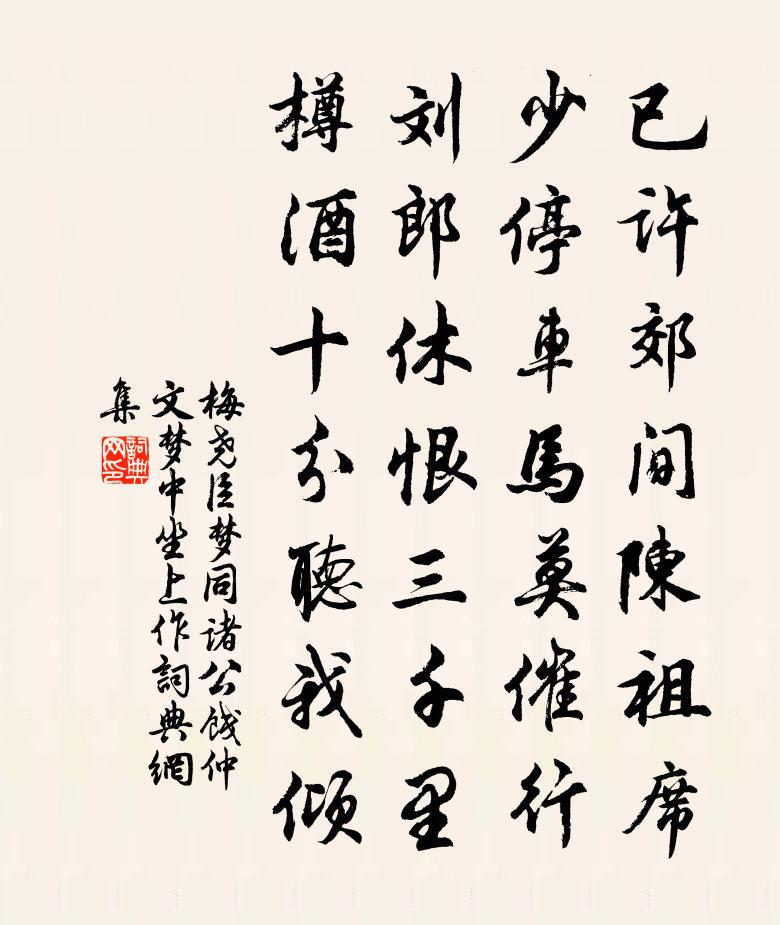 已许郊间陳祖席
少停車馬莫催行
刘郎休恨三千里
樽酒十分聽我倾
梅尧臣梦同诸公餞仲
文梦中坐上作詞典網
集
詞典網印